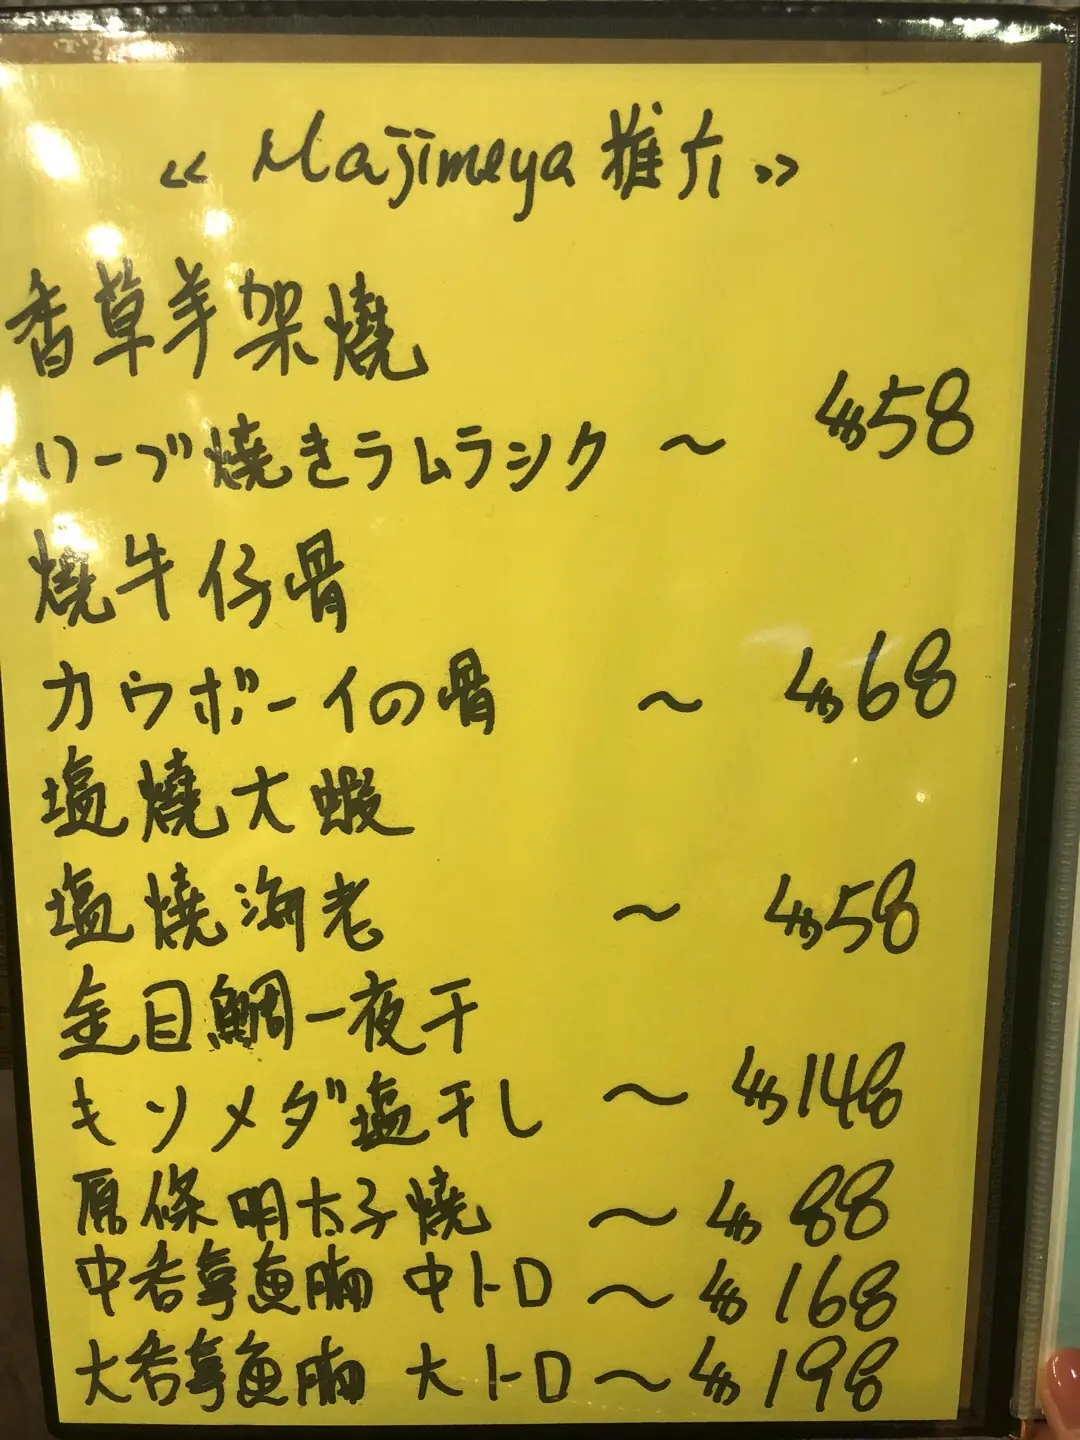 《 Majimeya 推介 》
香草羊架燒
ハーブ燒きラムラシク ～ $58
燒牛仔骨
カウボーイの骨 ～ $68
塩燒大蝦
塩燒海老 ～ $58
金目鯛一夜干
キソメダ塩干し ～ $148
原條明太子燒 ～ $88
中吞拿魚腩 中トロ ～ $168
大吞拿魚腩 大トロ ～ $198